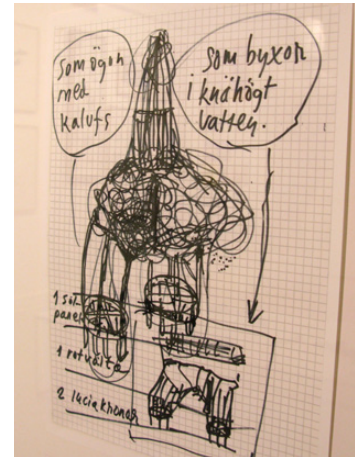 som ögon
med
kalufs
som byxor
i knähögt
vatten.
1
panel
1 rotvälta
2 luciakronor